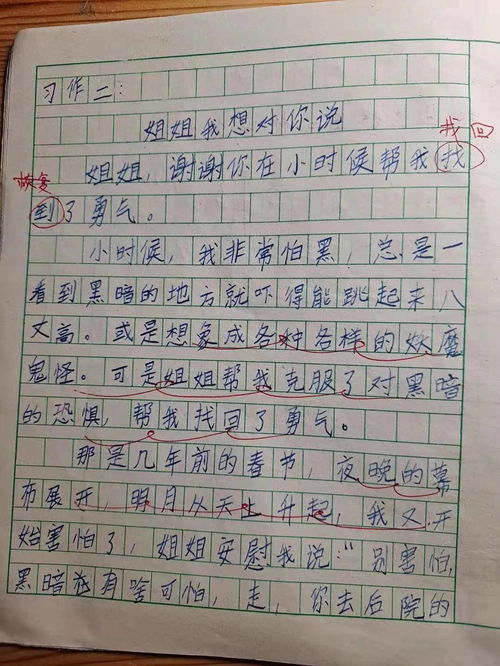 习作二：
姐姐我想对你说
找回
姐姐，谢谢你在小时候帮我找
恢复
到了勇气。
小时候，我非常怕黑，总是一
看到黑暗的地方就吓得能跳起来八
丈高。或是想象成各种各样的妖魔
鬼怪。可是姐姐帮我克服了对黑暗
的恐惧，帮我找回了勇气。
那是几年前的春节，夜晚的幕
布展开，明月从天上升起，我又开
始害怕了，姐姐安慰我说："别害怕，
黑暗有啥可怕，走，你去后院的